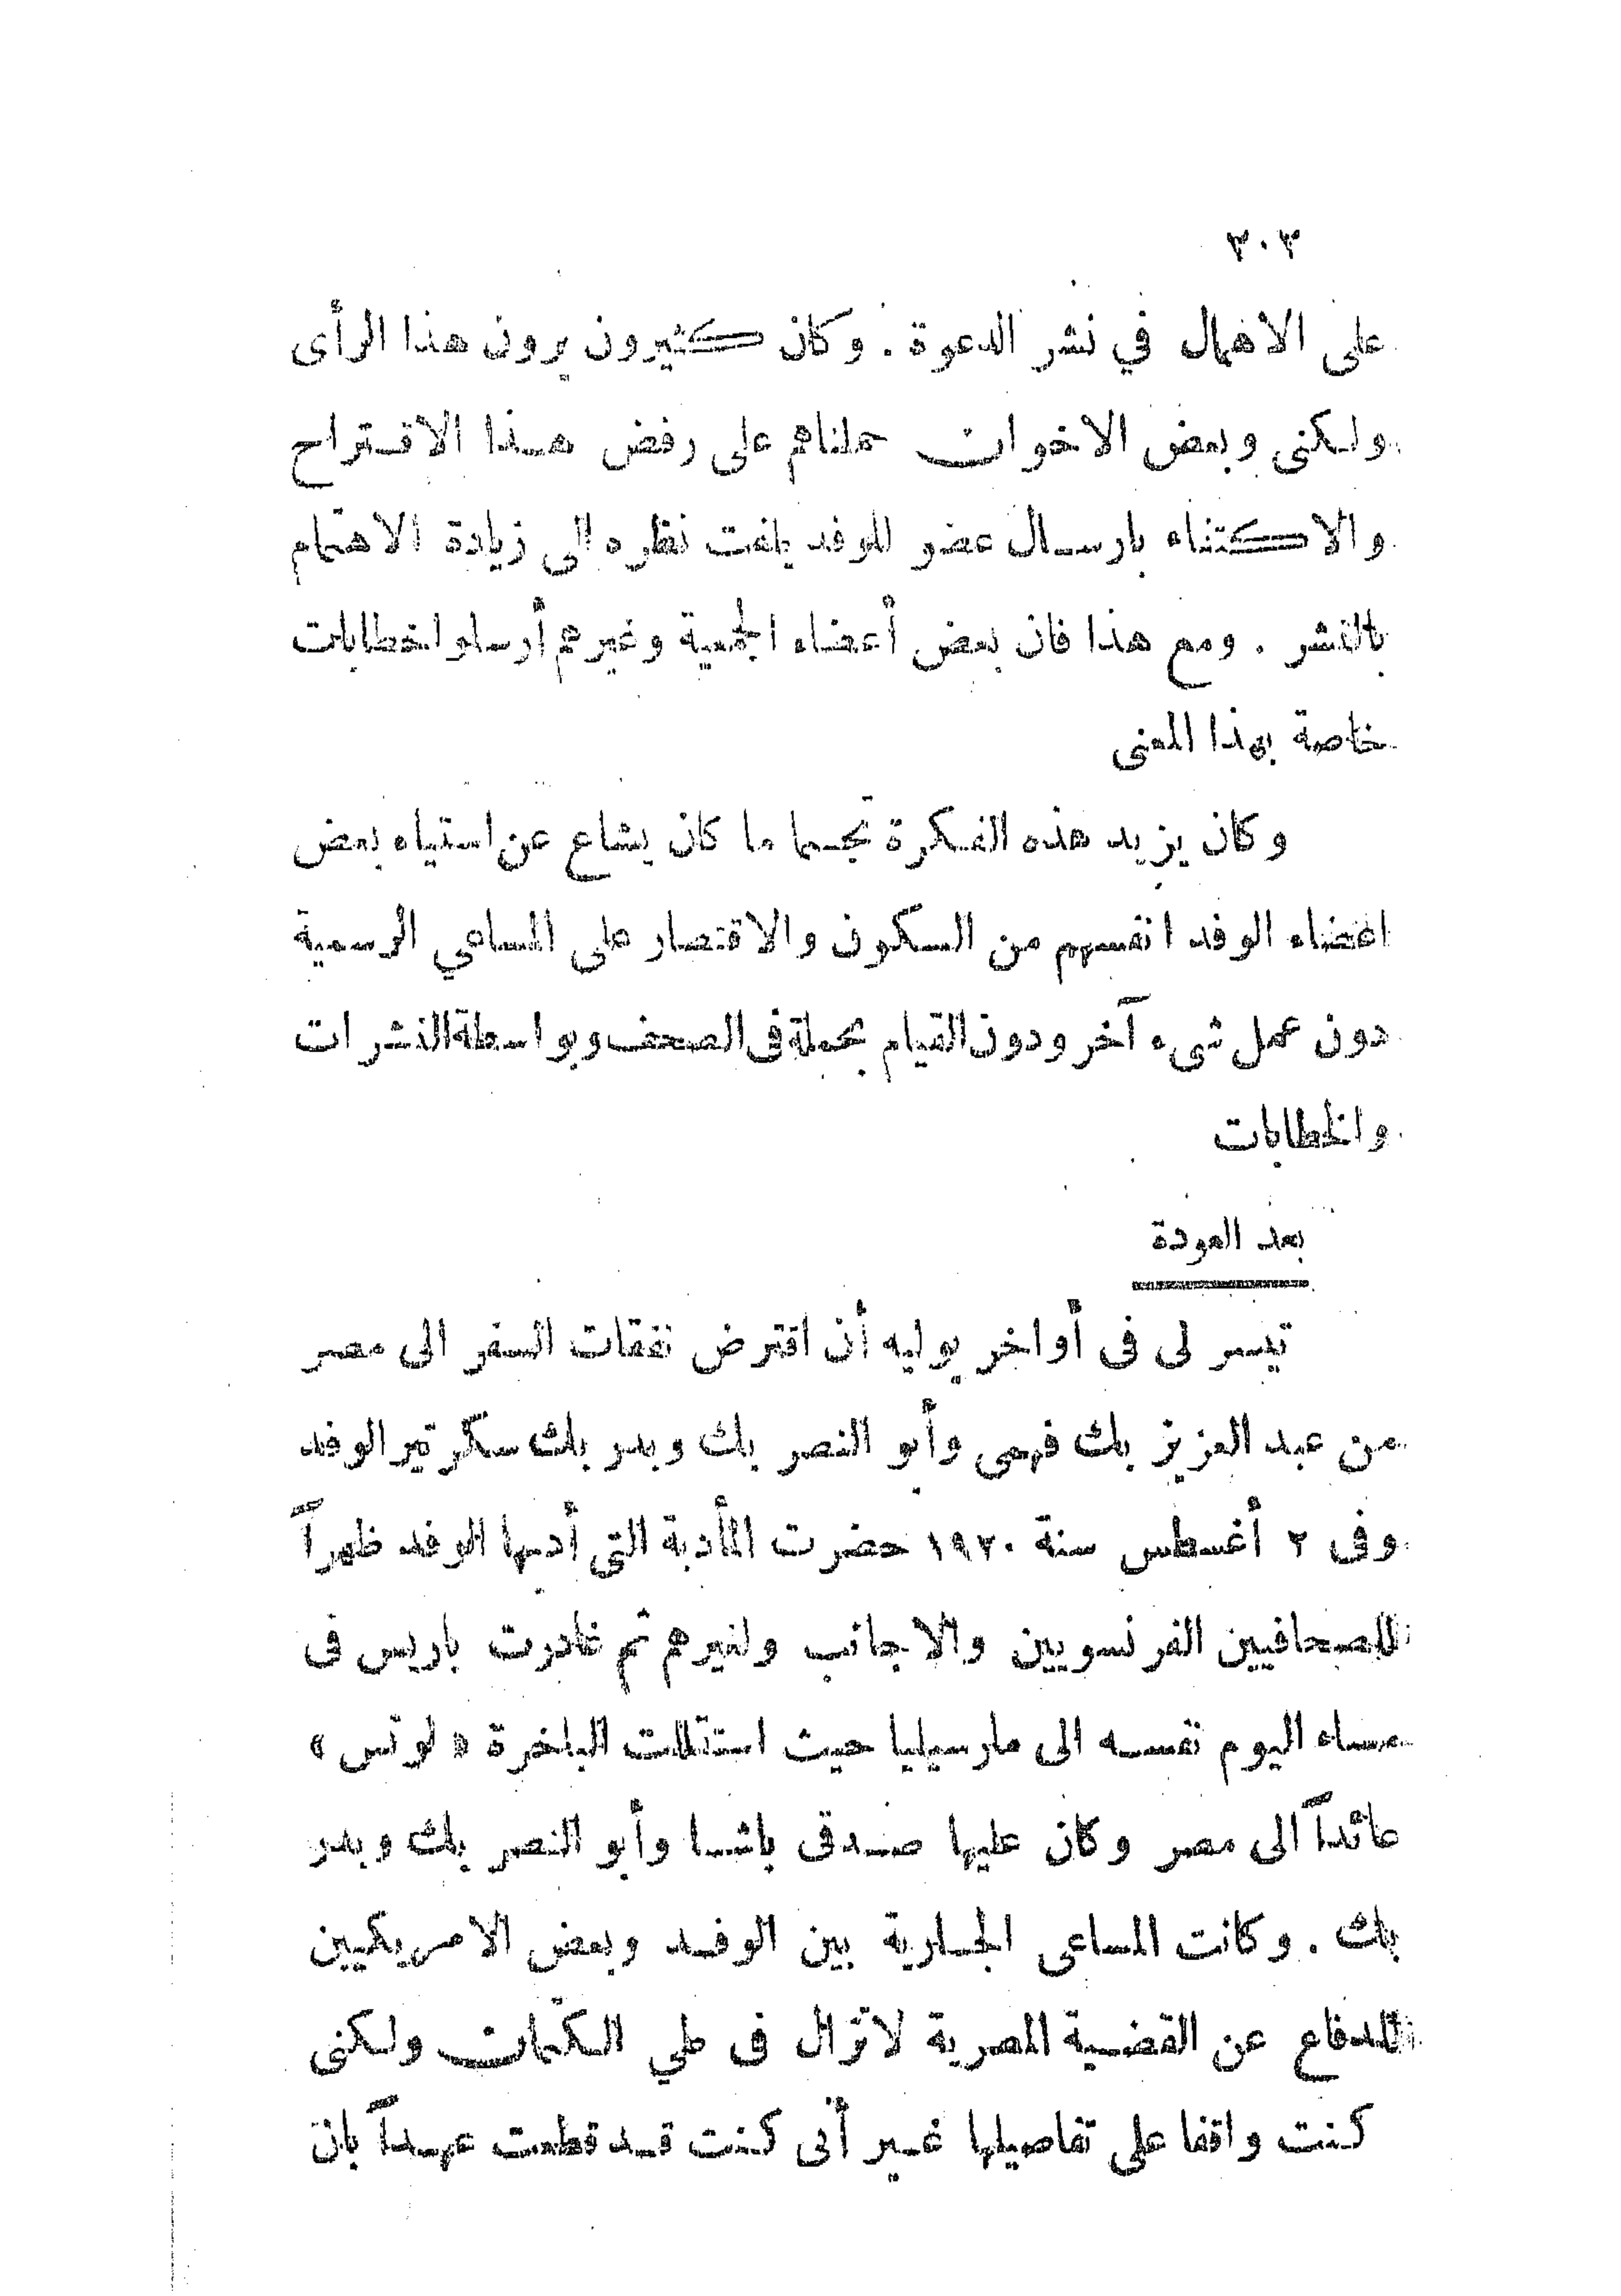 ٣٠٣
على الاهمال في نشر الدعوة . وكان كثيرون يرون هذا الرأى
ولكنى وبعض الاخوان حملناهم على رفض هذا الاقتراح
والاكتفاء بارسال عضو للوفد يلفت نظره الى زيادة الاهتمام
بالنشر . ومع هذا فان بعض أعضاء الجمعية وغيرهم أرسلوا خطابات
خاصة بهذا المعنى
وكان يزيد هذه الفكرة تجسما ما كان يشاع عن استياء بعض
اعضاء الوفد انفسهم من السكون والاقتصار على المساعي الرسمية
دون عمل شىء آخر ودون القيام بحملة فى الصحف وبواسطة النشرات
والخطابات
بعد العودة
تيسر لى فى أواخر يوليه أن اقترض نفقات السفر الى مصر
من عبد العزيز بك فهمى وأبو النصر بك وبدر بك سكرتير الوفد
وفى ٢ أغسطس سنة ١٩٢٠ حضرت المأدبة التى أدبها الوفد ظهراً
للصحافيين الفرنسويين والاجانب ولغيرهم ثم غادرت باريس فى
مساء اليوم نفسه الى مارسيليا حيث استقللت الباخرة « لوتس »
عائداً الى مصر وكان عليها صدقى باشا وأبو النصر بك وبدر
بك . وكانت المساعى الجارية بين الوفد وبعض الامريكيين
للدفاع عن القضية المصرية لاتزال فى طي الكتمان ولكنى
كنت واقفا على تفاصيلها غير أنى كنت قد قطعت عهداً بان